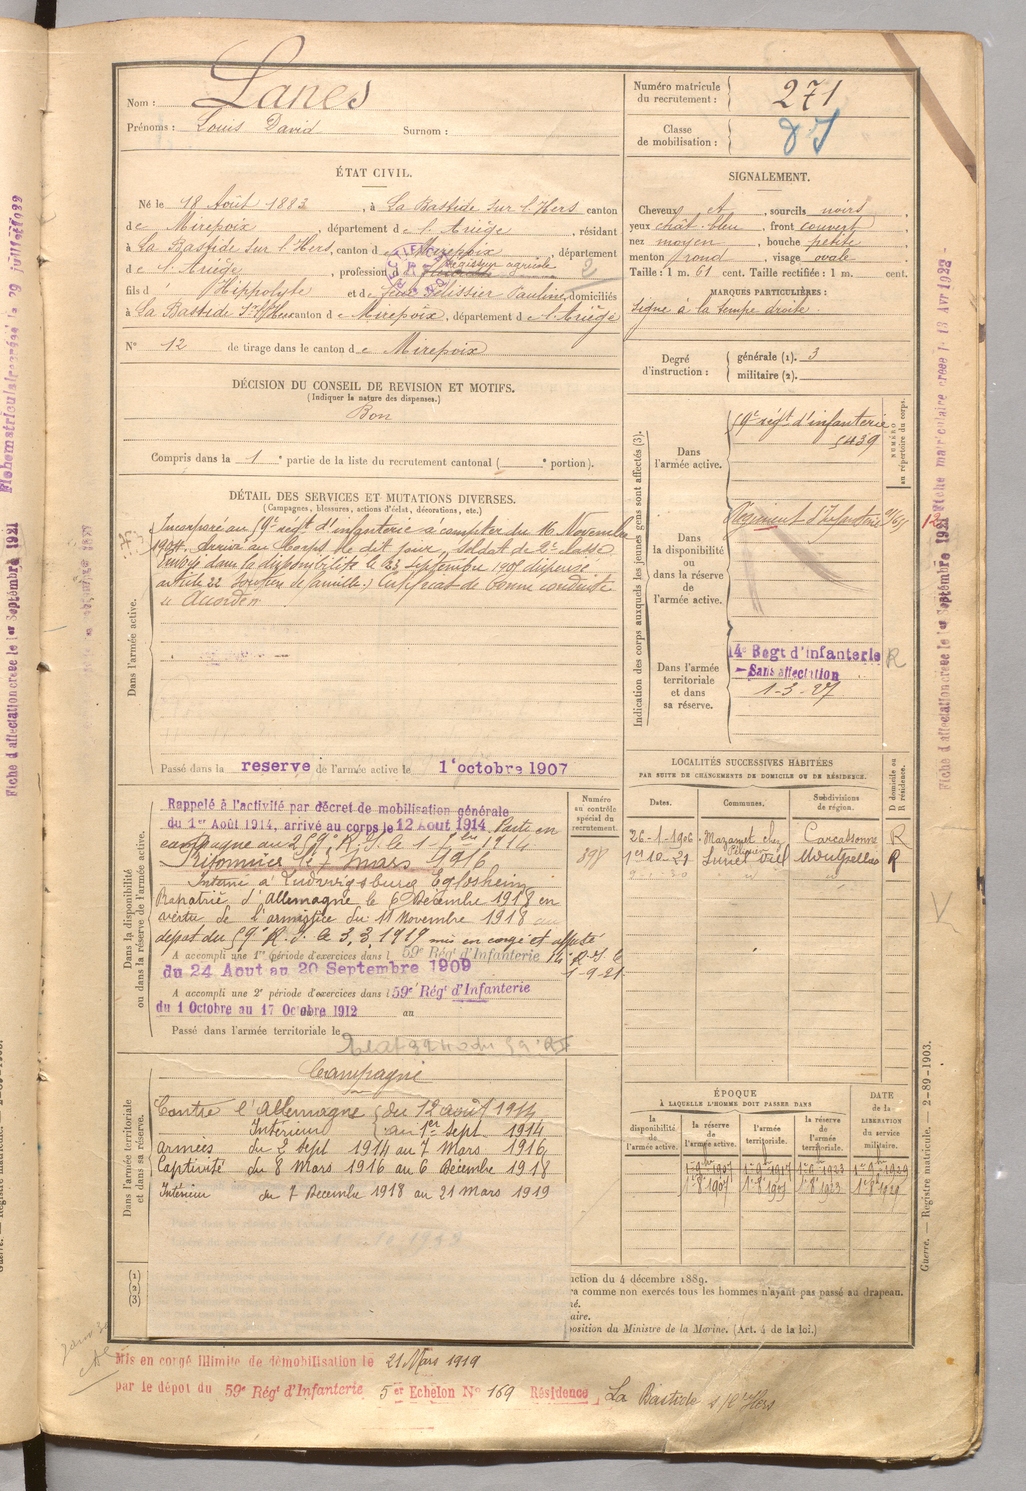 Nom : Lanes
Prénoms : Louis David Surnom :
Numéro matricule du recrutement : 271
Classe de mobilisation :
ÉTAT CIVIL.
Né le 18 Août 1883, à La Bastide sur l'Hers canton
de Mirepoix, département de l'Ariège, résidant
à La Bastide sur l'Hers, canton de Mirepoix département
de l'Ariège, profession d Régisseur agricole
2
fils d Hippolyte et de Pélissier Pauline, domiciliés
à La Bastide s/ l'Hers canton de Mirepoix, département de l'Ariège
N° 12 de tirage dans le canton de Mirepoix
DÉCISION DU CONSEIL DE REVISION ET MOTIFS.
(Indiquer la nature des dispenses.)
Bon
Compris dans la 1e partie de la liste du recrutement cantonal ( e portion).
SIGNALEMENT.
Cheveux et, sourcils noirs,
yeux chât. bleu, front couvert,
nez moyen, bouche petite
menton rond, visage ovale
Taille : 1 m. 61 cent. Taille rectifiée : 1 m. cent.
MARQUES PARTICULIÈRES :
Signe à la tempe droite.
Degré d'instruction : générale (1). 3
militaire (2).
DÉTAIL DES SERVICES ET MUTATIONS DIVERSES.
(Campagnes, blessures, actions d'éclat, décorations, etc.)
Dans l'armée active.
Incorporé au 59e régt d'infanterie à compter du 16 Novembre
1904. Arrivé au Corps le dit jour, soldat de 2e classe
Envoyé dans la disponibilité le 23 septembre 1905 dispensé
article 22 soutien de famille. Certificat de bonne conduite
« Accordé »
Passé dans la reserve de l'armée active le 1er octobre 1907
Indication des corps auxquels les jeunes gens sont affectés (3).
NUMÉRO au répertoire du corps.
Dans l'armée active.
59e régt d'infanterie
5439
Dans la disponibilité ou dans la réserve de l'armée active.
Régiment d'Infanterie
Dans l'armée territoriale et dans sa réserve.
14e Regt d'infanterie R
Sans affectation
1-3-27
Dans la disponibilité ou dans la réserve de l'armée active.
Rappelé à l'activité par décret de mobilisation générale
du 1er Août 1914, arrivé au corps le 12 Aout 1914. Parti en
campagne au 259e R.I. le 1-7bre 1914
Prisonnier le 7 mars 1916
Interné à Ludwigsburg Eglosheim
Rapatrié d'Allemagne le 6 Décembre 1918 en
vertu de l'armistice du 11 Novembre 1918 au
dépot du 59e R.I. le 3.3.1919 mis en congé et affecté
A accompli une 1re période d'exercices dans l 59e Rég d'Infanterie
1-9-21
du 24 Aout au 20 Septembre 1909
A accompli une 2e période d'exercices dans l 59e Rég d'Infanterie
du 1 Octobre au 17 Octobre 1912 au
Passé dans l'armée territoriale le
Numéro au contrôle spécial du recrutement.
898
LOCALITÉS SUCCESSIVES HABITÉES
PAR SUITE DE CHANGEMENTS DE DOMICILE OU DE RÉSIDENCE.
Dates. Communes. Subdivisions de région. D domicile ou R résidence.
26-1-1906 Mazamet chez Pélissier Carcassonne R
1er 10-21 Lunel Viel Montpellier R
Dans l'armée territoriale et dans sa réserve.
Campagne
Contre l'Allemagne du 12 août 1914
Intérieur au 1er sept. 1914
Armées du 2 sept 1914 au 7 Mars 1916
Captivité du 8 Mars 1916 au 6 Décembre 1918
Intérieur du 7 Decembre 1918 au 21 mars 1919
ÉPOQUE
À LAQUELLE L'HOMME DOIT PASSER DANS
la disponibilité de l'armée active.
la réserve de l'armée active.
l'armée territoriale.
la réserve de l'armée territoriale.
DATE de la LIBÉRATION du service militaire.
(1)
(2)
(3)
uction du 4 décembre 1889.
ra comme non exercés tous les hommes n'ayant pas passé au drapeau.
né.
aire.
position du Ministre de la Marine. (Art. 4 de la loi.)
Mis en congé illimité de démobilisation le 21 Mars 1919
par le dépot du 59e Rég d'Infanterie 5er Echelon N° 169 Résidence La Bastide s/ l'Hers
Guerre. — Registre matricule. — 2-89-1903.
Fiche d'affectation creee le 1er Septembre 1921
Fiche matriculaire creee le
Fiche d'affectation creee le 1er Septembre 1921 Fiche matriculaire creee le